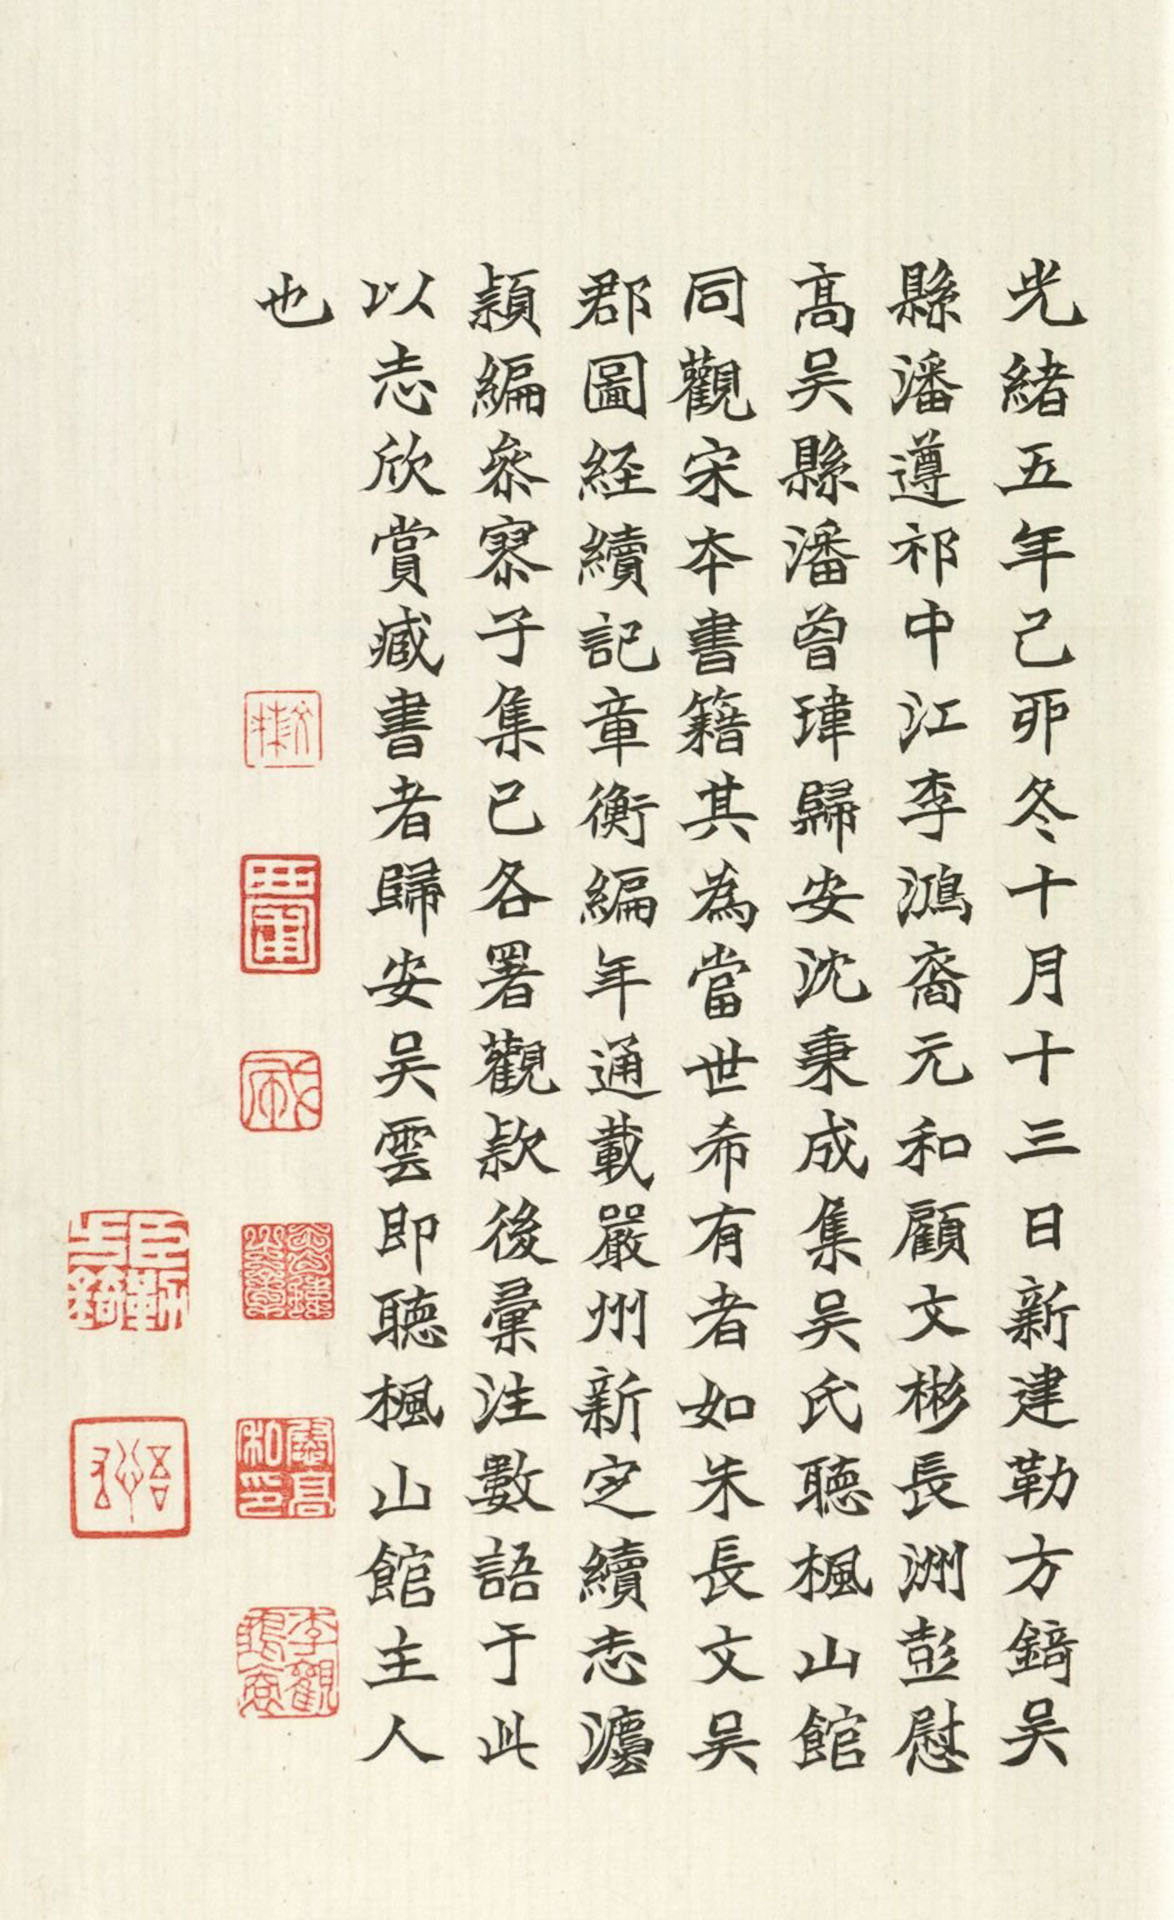 光緒五年己卯冬十月十三日新建勒方錡吳
縣潘遵祁中江李鴻裔元和顧文彬長洲彭慰
髙吳縣潘曾瑋歸安沈秉成集吳氏聽楓山館
同觀宋本書籍其為當世希有者如朱長文吳
郡圖経續記章衡編年通載嚴州新定續志瀍
頴編叅寥子集已各署觀款後彙注數語于此
以志欣賞臧書者歸安吳雲即聽楓山館主人
也